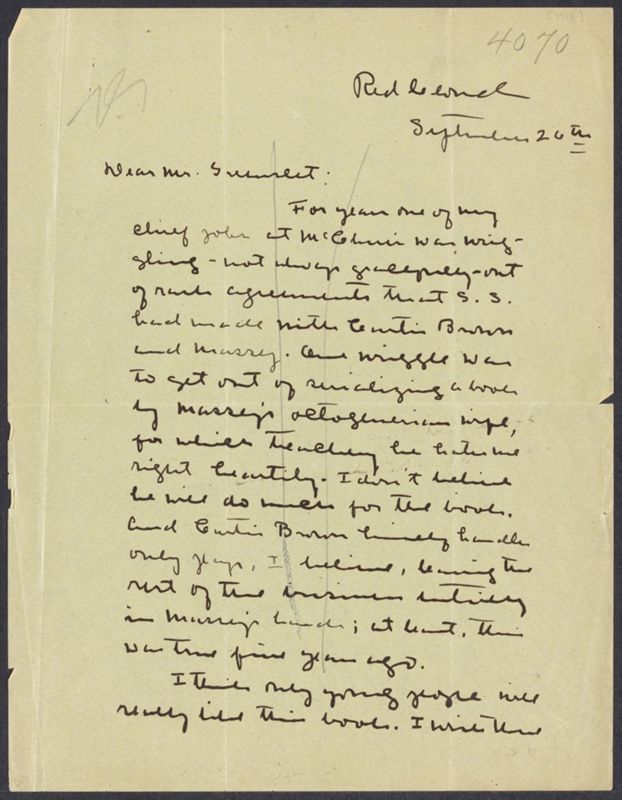 4070
Red Cloud
September 26th
Dear Mr. Greenslet:
For years one of my
chief jobs at McClure's was wrig-
gling - not always gracefully - out
of rash agreements that S. S.
had made with Curtis Brown
and Massey. One wriggle was
to get out of serializing a book
by Massey's octogenerian wife,
for which treachery he hates me
right heartily. I don't believe
he will do much for the book.
And Curtis Brown himself handles
only plays, I believe, leaving the
rest of the business entirely
in Massey's hands; at least, this
was true five years ago.
I think only young people will
really like this book. I wish that